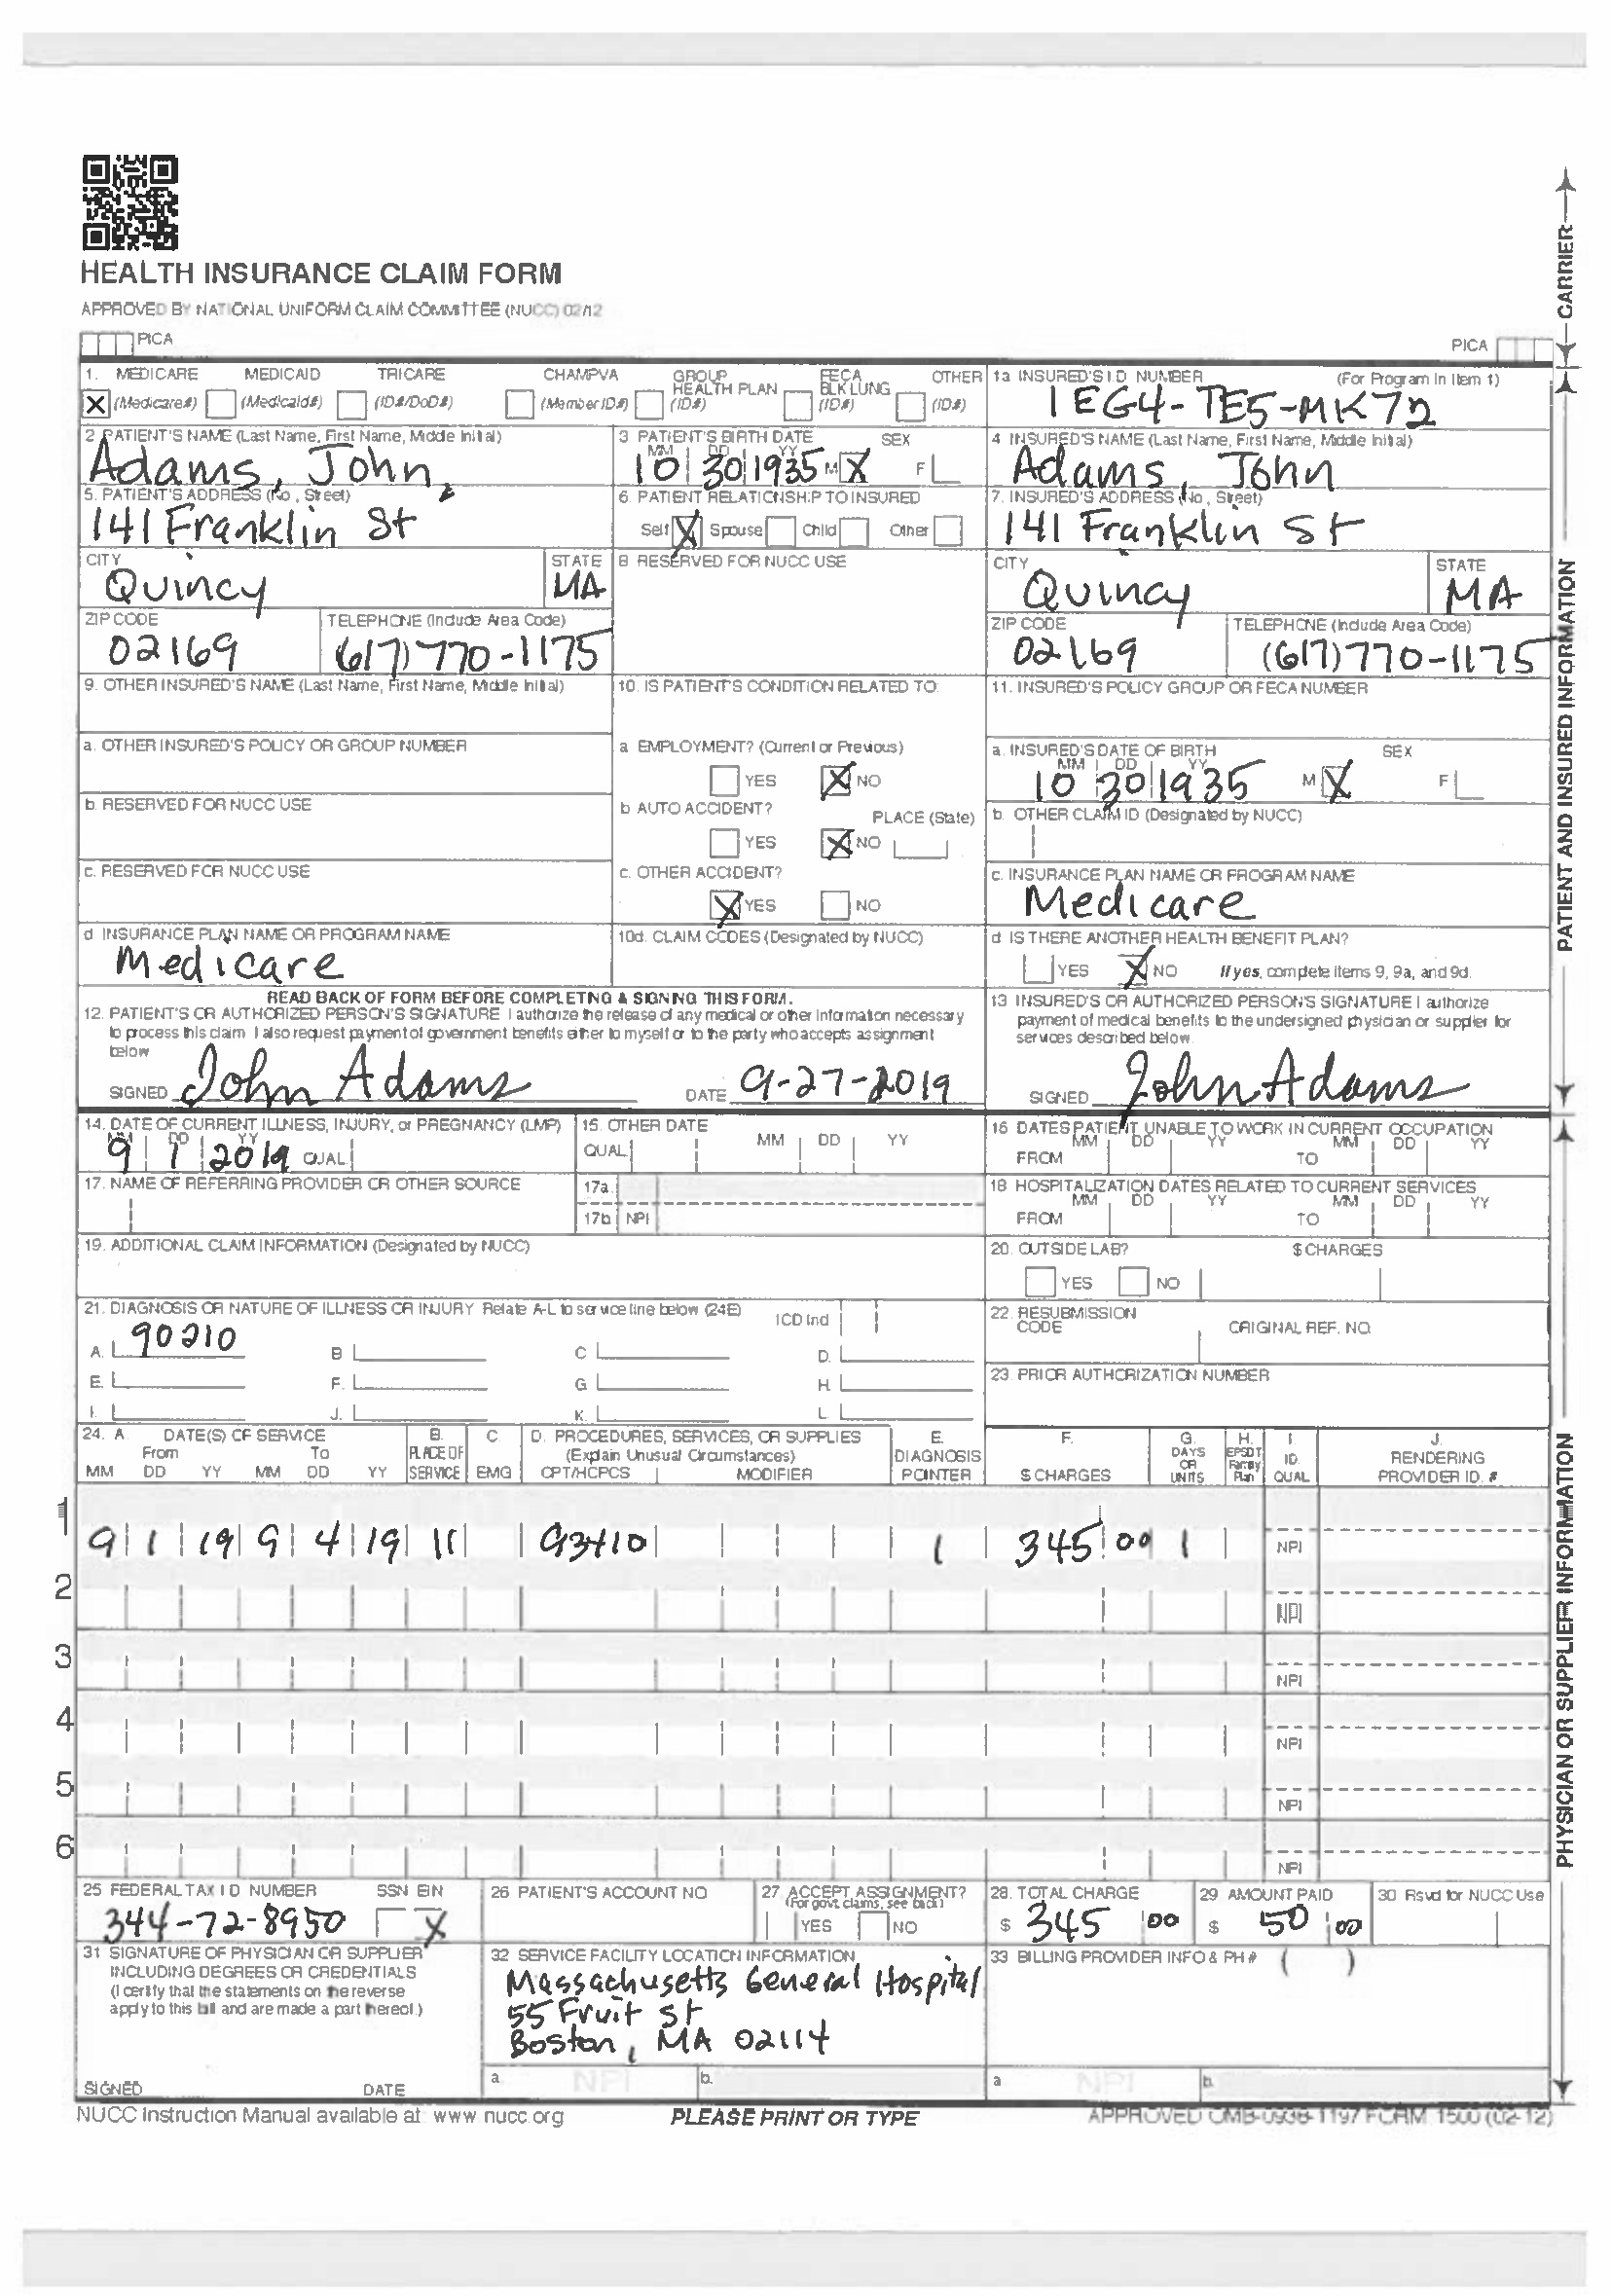 HEALTH INSURANCE CLAIM FORM
APPROVED BY NATIONAL UNIFORM CLAIM COMMITTEE (NUCC) 02/12
PICA
PICA
CARRIER
1. MEDICARE MEDICAID TRICARE CHAMPVA GROUP HEALTH PLAN FECA BLK LUNG OTHER
X (Medicare#) (Medicaid#) (ID#/DoD#) (Member ID#) (ID#) (ID#) (ID#)
1a INSURED'S I D NUMBER (For Program In Item 1)
1EG4-TE5-MK72
2 PATIENT'S NAME (Last Name, First Name, Middle Initial)
Adams, John,
3 PATIENT'S BIRTH DATE SEX
MM DD YY
10 30 1935 M X F
4 INSURED'S NAME (Last Name, First Name, Middle Initial)
Adams, John
5. PATIENT'S ADDRESS (No, Street)
141 Franklin St
6 PATIENT RELATIONSHIP TO INSURED
Self X Spouse Child Other
7. INSURED'S ADDRESS (No, Street)
141 Franklin St
CITY
Quincy
STATE
MA
8 RESERVED FOR NUCC USE
CITY
Quincy
STATE
MA
ZIP CODE
02169
TELEPHONE (Include Area Code)
(617) 770-1175
ZIP CODE
02169
TELEPHONE (Include Area Code)
(617) 770-1175
9. OTHER INSURED'S NAME (Last Name, First Name, Middle Initial)
10. IS PATIENT'S CONDITION RELATED TO:
11. INSURED'S POLICY GROUP OR FECA NUMBER
a. OTHER INSURED'S POLICY OR GROUP NUMBER
a EMPLOYMENT? (Current or Previous)
YES X NO
a. INSURED'S DATE OF BIRTH SEX
MM DD YY
10 30 1935 M X F
b. RESERVED FOR NUCC USE
b AUTO ACCIDENT? PLACE (State)
YES X NO
b. OTHER CLAIM ID (Designated by NUCC)
c. RESERVED FOR NUCC USE
c. OTHER ACCIDENT?
X YES NO
c. INSURANCE PLAN NAME OR PROGRAM NAME
Medicare
d INSURANCE PLAN NAME OR PROGRAM NAME
Medicare
10d. CLAIM CODES (Designated by NUCC)
d IS THERE ANOTHER HEALTH BENEFIT PLAN?
YES X NO If yes, complete items 9, 9a, and 9d.
READ BACK OF FORM BEFORE COMPLETING & SIGNING THIS FORM.
12. PATIENT'S OR AUTHORIZED PERSON'S SIGNATURE I authorize the release of any medical or other information necessary
to process this claim I also request payment of government benefits either to myself or to the party who accepts assignment
below
SIGNED John Adams DATE 9-27-2019
13 INSURED'S OR AUTHORIZED PERSON'S SIGNATURE I authorize
payment of medical benefits to the undersigned physician or supplier for
services described below.
SIGNED John Adams
PATIENT AND INSURED INFORMATION
14. DATE OF CURRENT ILLNESS, INJURY, or PREGNANCY (LMP)
MM DD YY
9 1 2019 QUAL
15. OTHER DATE
QUAL MM DD YY
16 DATES PATIENT UNABLE TO WORK IN CURRENT OCCUPATION
MM DD YY MM DD YY
FROM TO
17. NAME OF REFERRING PROVIDER OR OTHER SOURCE
17a.
17b NPI
18 HOSPITALIZATION DATES RELATED TO CURRENT SERVICES
MM DD YY MM DD YY
FROM TO
19. ADDITIONAL CLAIM INFORMATION (Designated by NUCC)
20. OUTSIDE LAB? $ CHARGES
YES NO
21. DIAGNOSIS OR NATURE OF ILLNESS OR INJURY Relate A-L to service line below (24E) ICD Ind
A. 90210 B C D.
E. F. G H.
I. J. K. L.
22. RESUBMISSION
CODE ORIGINAL REF. NO
23. PRIOR AUTHORIZATION NUMBER
24. A DATE(S) OF SERVICE B. C. D. PROCEDURES, SERVICES, OR SUPPLIES E. F. G. H. I. J.
From To PLACE OF (Explain Unusual Circumstances) DIAGNOSIS DAYS OR UNITS EPSDT Family Plan ID. RENDERING
MM DD YY MM DD YY SERVICE EMG CPT/HCPCS MODIFIER POINTER $ CHARGES QUAL PROVIDER ID. #
1 9 1 19 9 4 19 11 93410 1 345 00 1 NPI
2 NPI
3 NPI
4 NPI
5 NPI
6 NPI
25 FEDERAL TAX I D NUMBER SSN EIN
344-72-8950 X
26 PATIENT'S ACCOUNT NO
27 ACCEPT ASSIGNMENT?
(For govt. claims, see back)
YES NO
28. TOTAL CHARGE
$ 345 00
29 AMOUNT PAID
$ 50 00
30 Rsvd for NUCC Use
31 SIGNATURE OF PHYSICIAN OR SUPPLIER
INCLUDING DEGREES OR CREDENTIALS
(I certify that the statements on the reverse
apply to this bill and are made a part thereof.)
SIGNED DATE
32 SERVICE FACILITY LOCATION INFORMATION
Massachusetts General Hospital
55 Fruit St
Boston, MA 02114
a. NPI b.
33 BILLING PROVIDER INFO & PH # ( )
a NPI b
PHYSICIAN OR SUPPLIER INFORMATION
NUCC Instruction Manual available at: www nucc.org
PLEASE PRINT OR TYPE
APPROVED OMB-0938-1197 FORM 1500 (02-12)